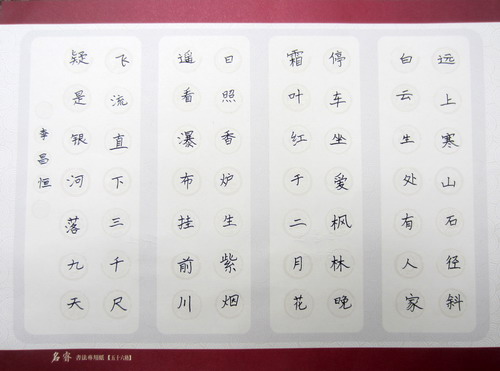 远上寒山石径斜
白云生处有人家
停车坐爱枫林晚
霜叶红于二月花
日照香炉生紫烟
遥看瀑布挂前川
飞流直下三千尺
疑是银河落九天
李昌恒
名睿 书法专用纸【五十六格】